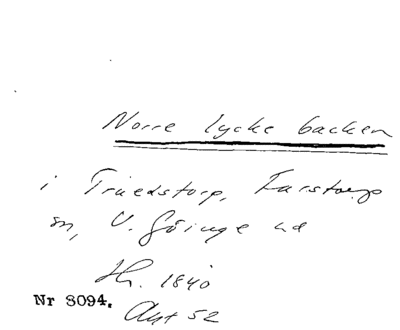 Norre lycke backen
i Truedstorp, Farstorps
sn, V. Göinge hd
Hr. 1840
Nr 8094.
Akt 52